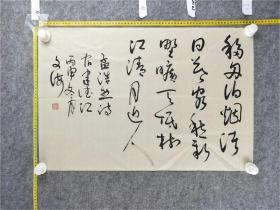 移舟泊烟渚
日暮客愁新
野旷天低树
江清月近人
孟浩然诗
宿建德江
丙申冬月
文海